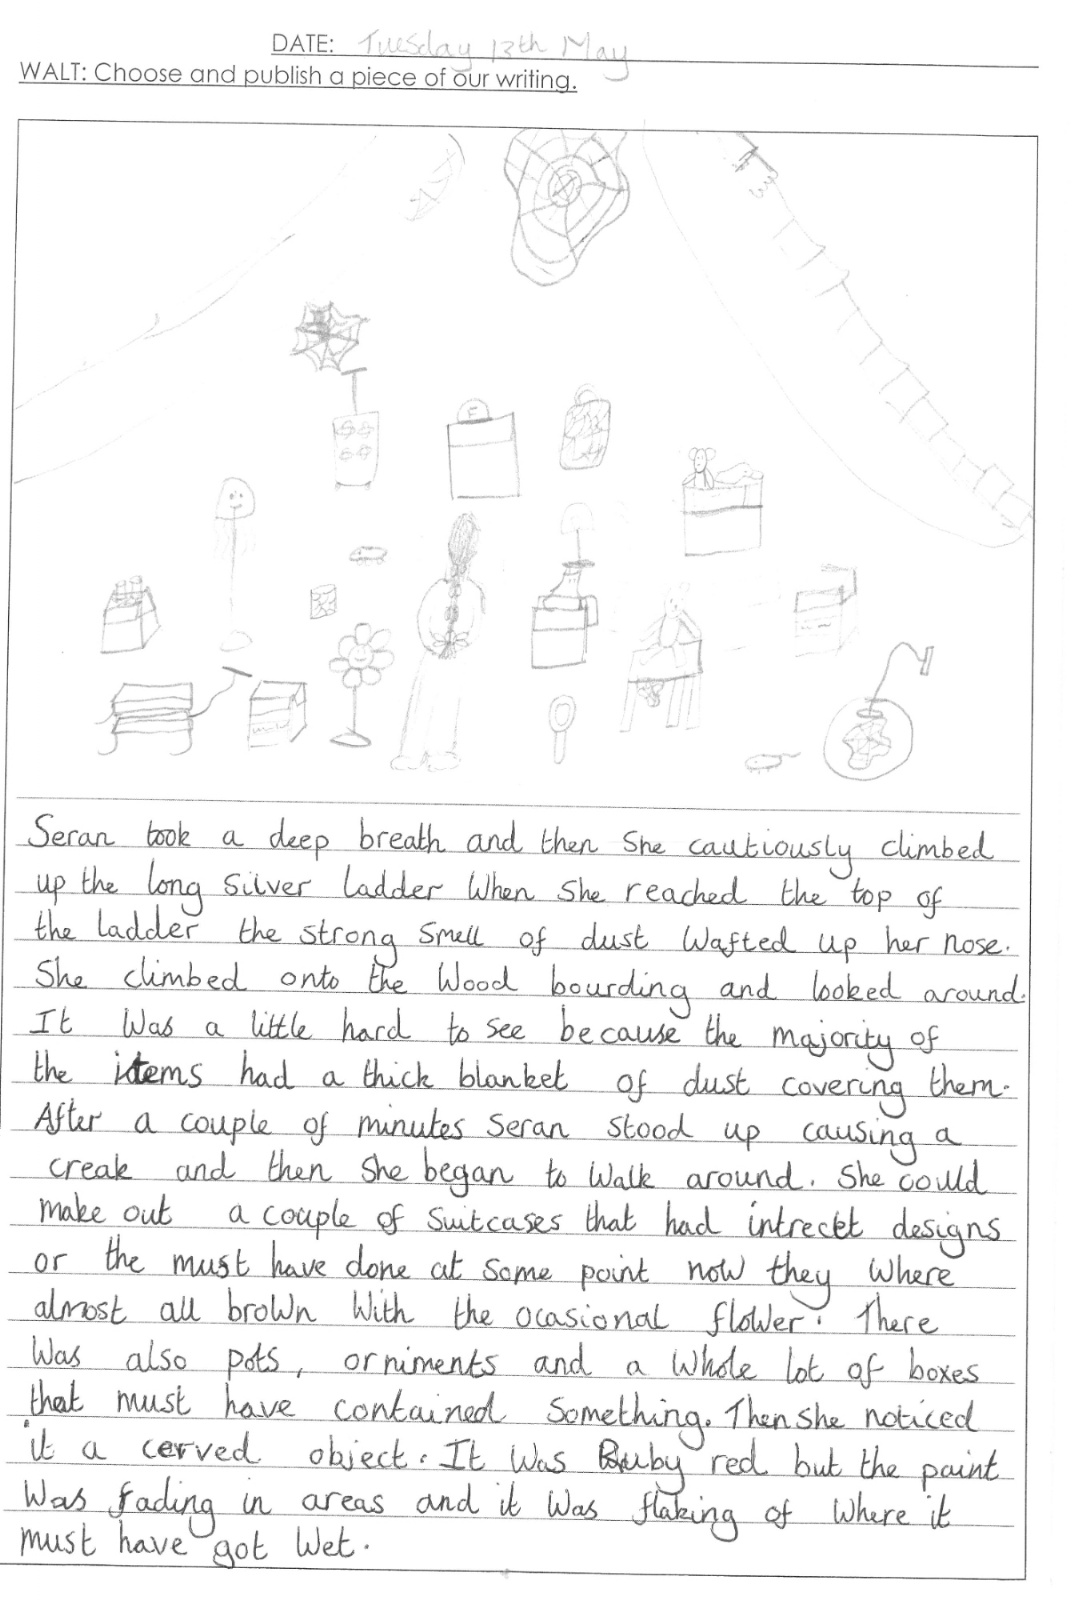 DATE: Tuesday 13th May
WALT: Choose and publish a piece of our writing.
F
Seran took a deep breath and then She cautiously climbed
up the long Silver ladder When She reached the top of
the ladder the strong Smell of dust Wafted up her nose.
She climbed onto the Wood bourding and looked around.
It Was a little hard to see because the majority of
the items had a thick blanket of dust covering them.
After a couple of minutes Seran Stood up causing a
creak and then She began to Walk around. She could
make out a couple of Suitcases that had intreckt designs
or the must have done at Some point now they Where
almost all brown With the ocasional flower. There
Was also pots, orniments and a Whole lot of boxes
that must have contained Something. Then She noticed
it a cerved object. It Was Ruby red but the paint
Was fading in areas and it Was flaking of Where it
must have got Wet.